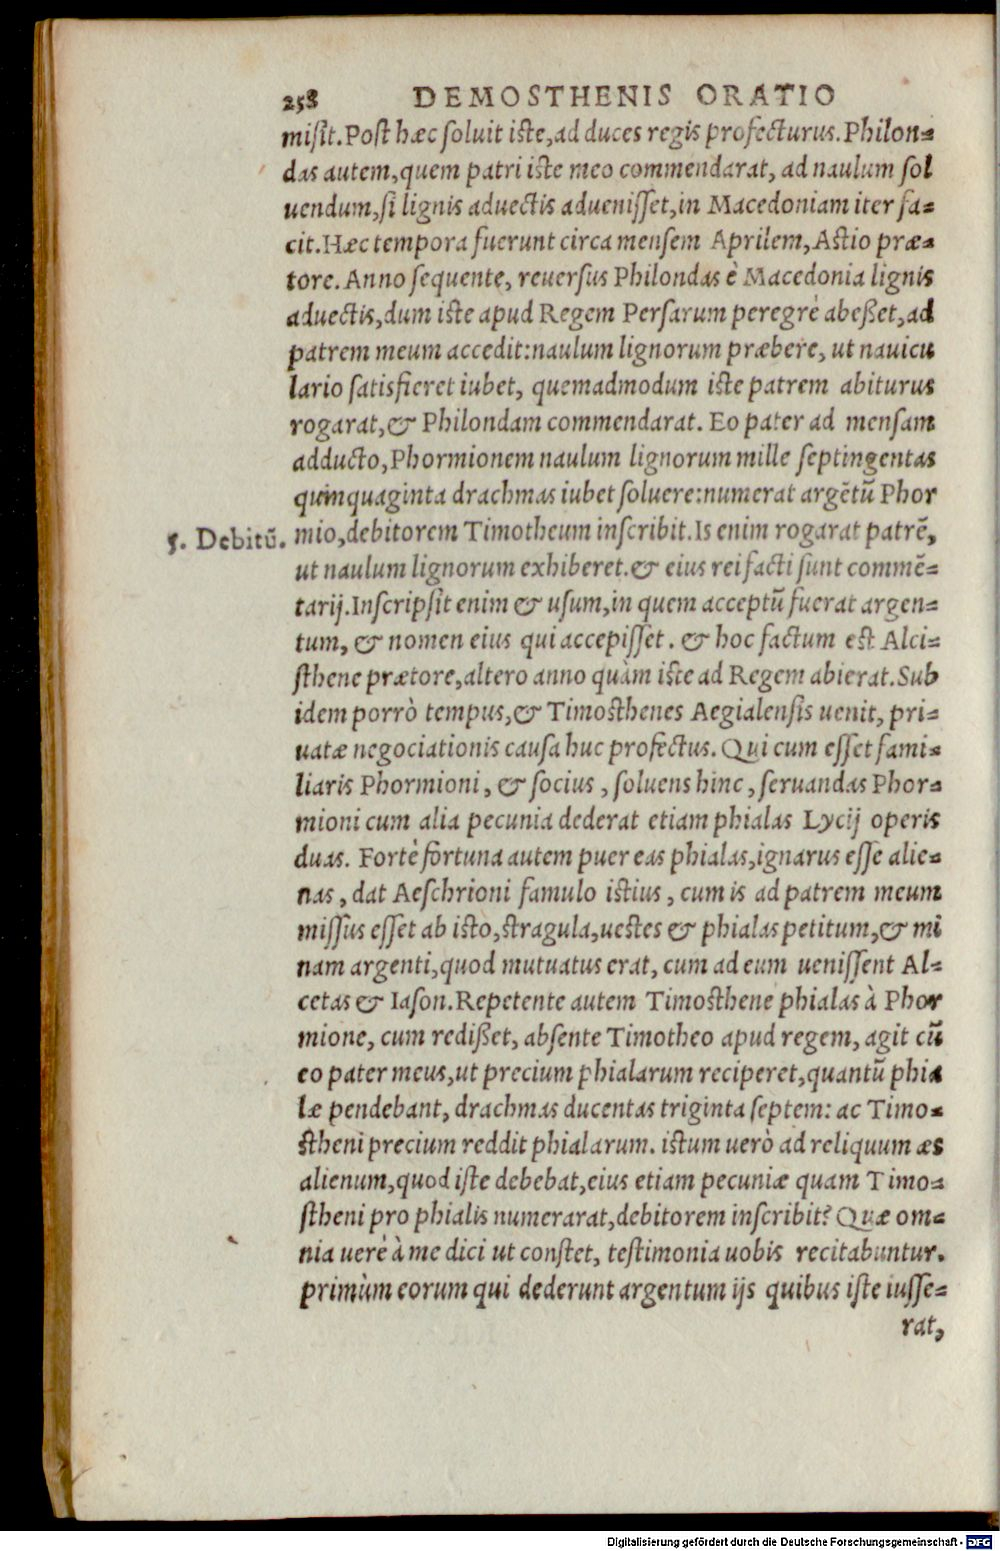 258 DEMOSTHENIS ORATIO
misit. Post hæc soluit iste, ad duces regis profecturus. Philon=
das autem, quem patri iste meo commendarat, ad naulum sol
uendum, si lignis aduectis aduenisset, in Macedoniam iter fa=
cit. Hæc tempora fuerunt circa mensem Aprilem, Astio præ=
tore. Anno sequente, reuersus Philondas è Macedonia lignis
aduectis, dum iste apud Regem Persarum peregrè abeßet, ad
patrem meum accedit: naulum lignorum præbere, ut nauicu
lario satisfieret iubet, quemadmodum iste patrem abiturus
rogarat, & Philondam commendarat. Eo pater ad mensam
adducto, Phormionem naulum lignorum mille septingentas
quinquaginta drachmas iubet soluere: numerat argētū Phor
5. Debitū. mio, debitorem Timotheum inscribit. Is enim rogarat patrē,
ut naulum lignorum exhiberet. & eius rei facti sunt commē=
tarij. Inscripsit enim & usum, in quem acceptū fuerat argen=
tum, & nomen eius qui accepisset. & hoc factum est Alci=
sthene prætore, altero anno quàm iste ad Regem abierat. Sub
idem porrò tempus, & Timosthenes Aegialensis uenit, pri=
uatæ negociationis causa huc profectus. Qui cum esset fami=
liaris Phormioni, & socius, soluens hinc, seruandas Phor=
mioni cum alia pecunia dederat etiam phialas Lycij operis
duas. Fortè fortuna autem puer eas phialas, ignarus esse alie=
nas, dat Aeschrioni famulo istius, cum is ad patrem meum
missus esset ab isto, stragula, uestes & phialas petitum, & mi
nam argenti, quod mutuatus erat, cum ad eum uenissent Al=
cetas & Iason. Repetente autem Timosthene phialas à Phor
mione, cum redißet, absente Timotheo apud regem, agit cū
eo pater meus, ut precium phialarum reciperet, quantū phia
læ pendebant, drachmas ducentas triginta septem: ac Timo=
stheni precium reddit phialarum. istum uerò ad reliquum æs
alienum, quod iste debebat, eius etiam pecuniæ quam Timo=
stheni pro phialis numerarat, debitorem inscribit? Quæ om=
nia uerè à me dici ut constet, testimonia uobis recitabuntur.
primùm eorum qui dederunt argentum ijs quibus iste iusse=
rat,
Digitalisierung gefördert durch die Deutsche Forschungsgemeinschaft - DFG